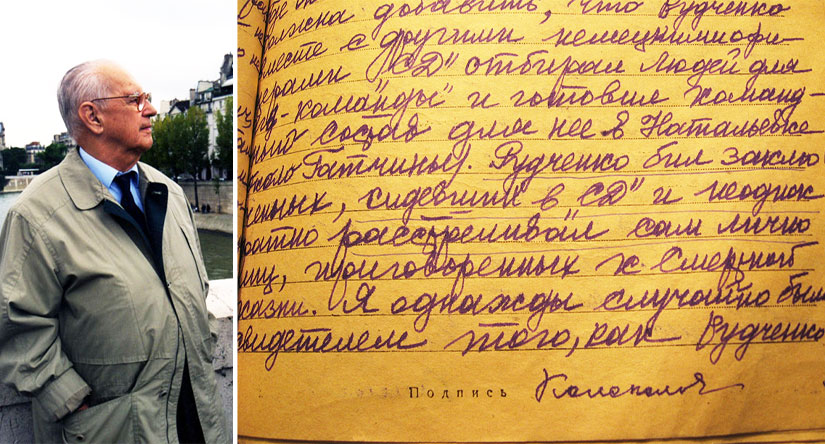 должна добавить, что Рудченко
вместе с другими немецкими офи-
церами „СД" отбирал людей для
команды" и готовил команд-
ный состав для нее в Натальевке
(около Гатчины). Рудченко бил заклю
ченных, сидевших в „СД" и неоднок
ратно расстреливал сам лично
лиц, приговоренных к смертной
казни. Я однажды случайно был
свидетелем того, как Рудченко
Подпись